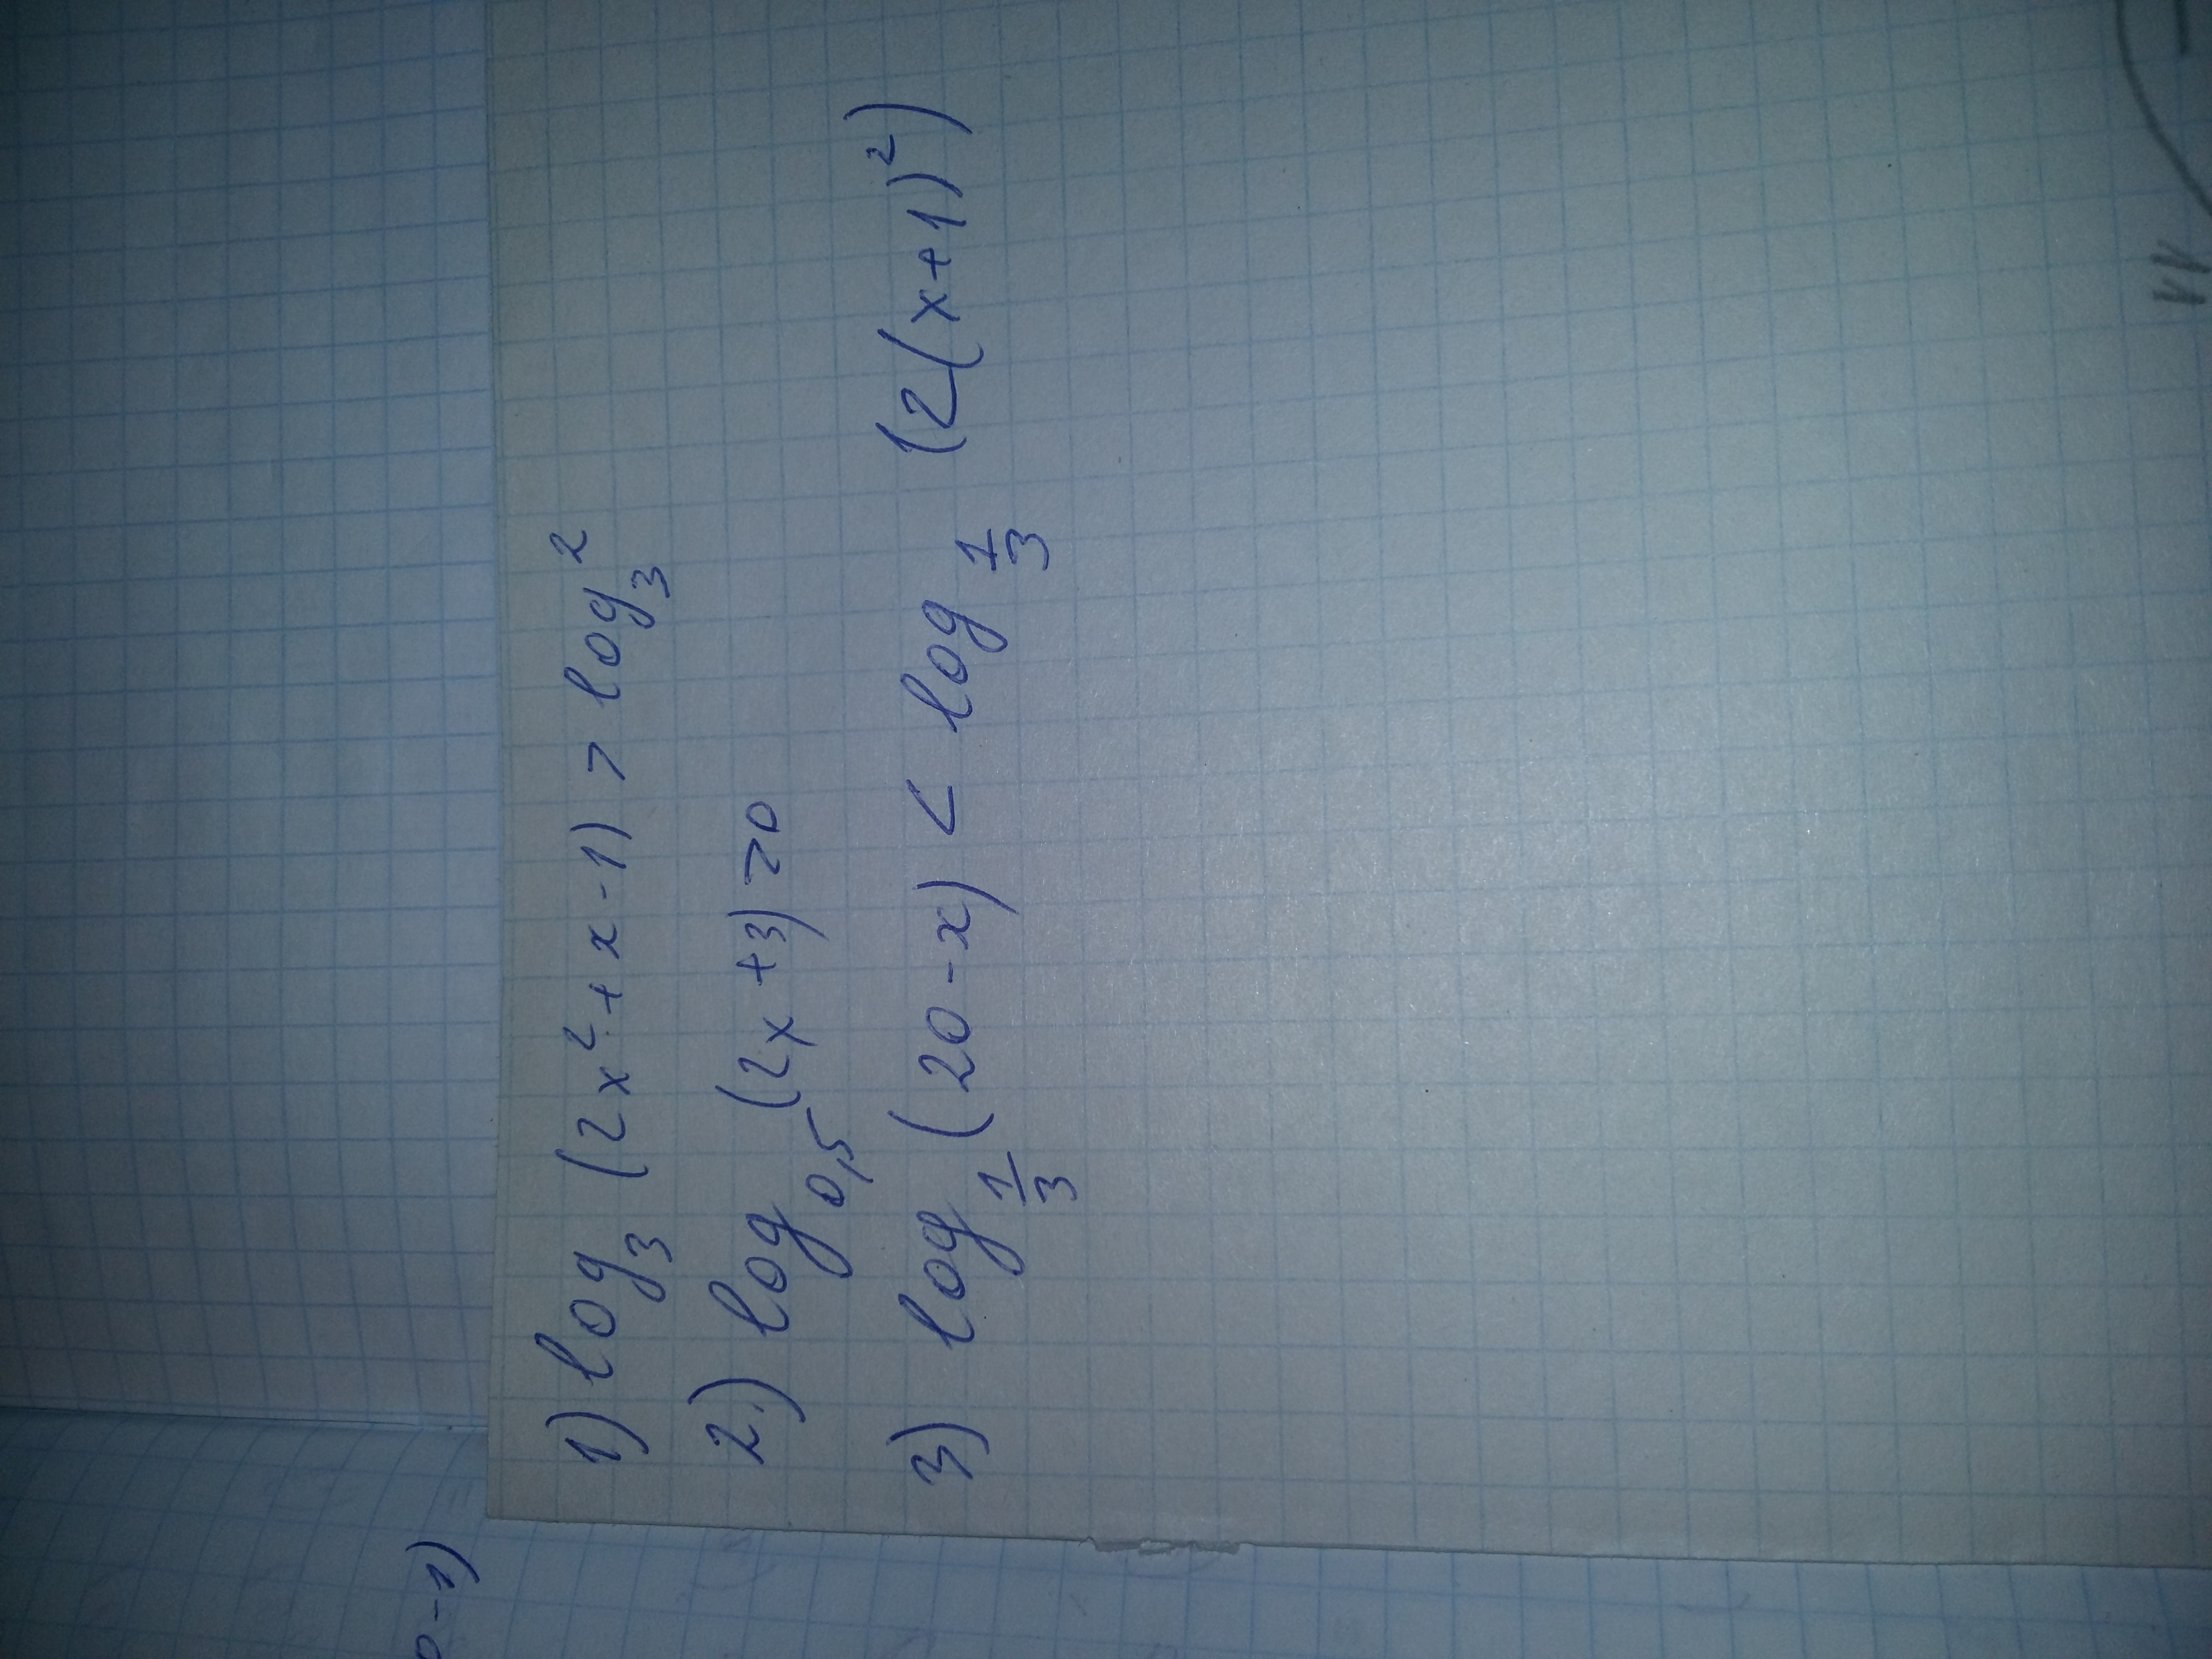 1) log₃ (2x² + x - 1) > log₃ 2
2.) log₀,₅ (2x + 3) > 0
3) log 1/3 (20 - x) < log 1/3 (2(x + 1)²)
-1)